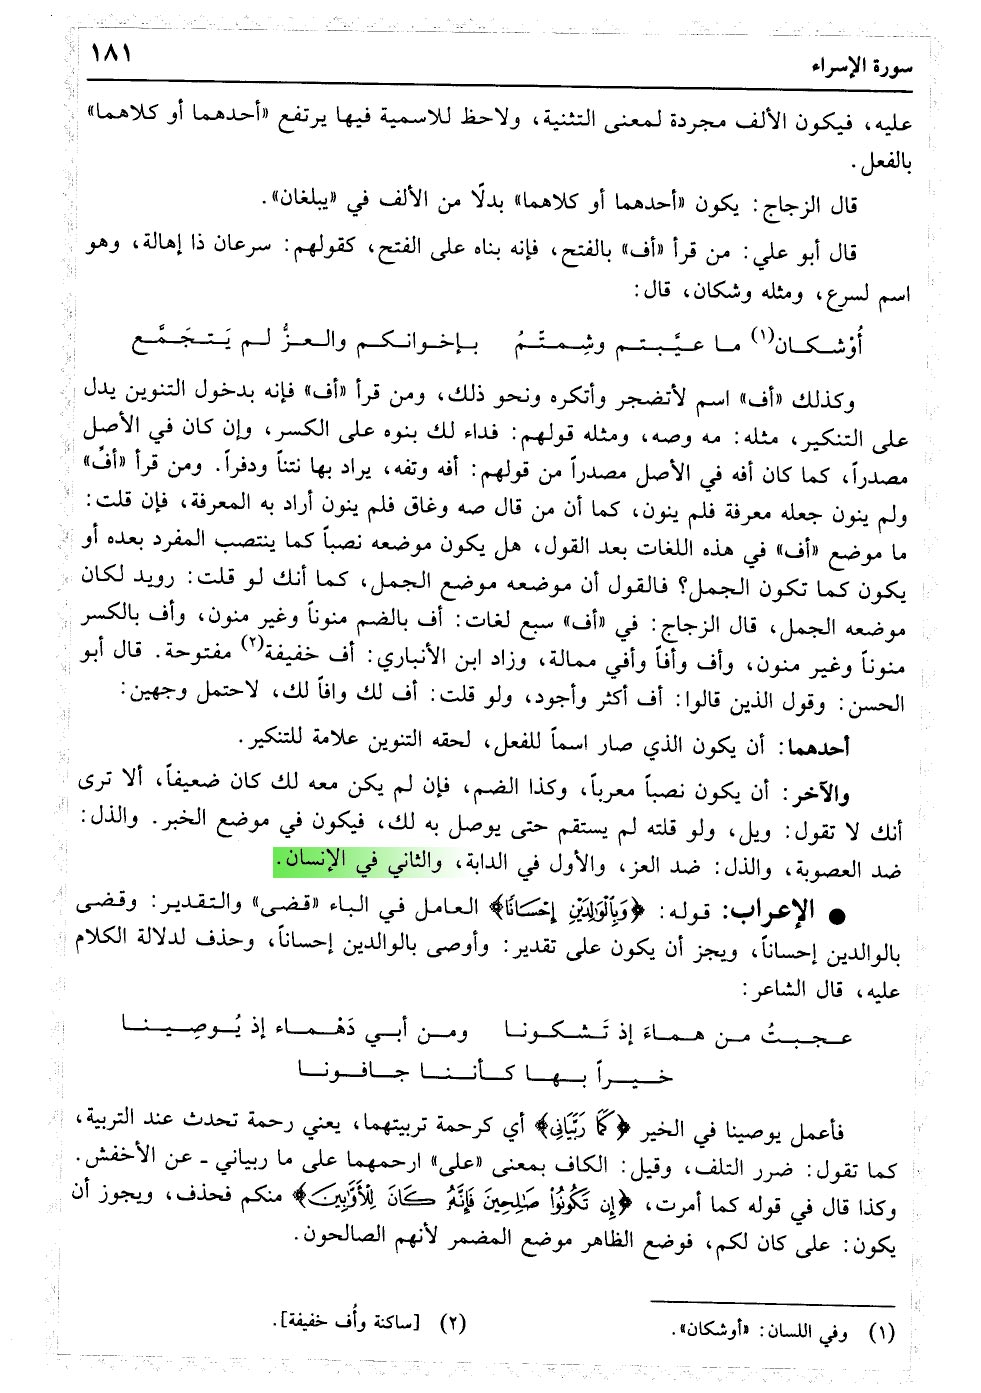 سورة الإسراء ١٨١
عليه، فيكون الألف مجردة لمعنى التثنية، ولاحظ للاسمية فيها يرتفع «أحدهما أو كلاهما»
بالفعل.
قال الزجاج: يكون «أحدهما أو كلاهما» بدلًا من الألف في «يبلغان».
قال أبو علي: من قرأ «أف» بالفتح، فإنه بناه على الفتح، كقولهم: سرعان ذا إهالة، وهو
اسم لسرع، ومثله وشكان، قال:
أُوْشكان(١) ما عيَّبتم وشِمتَّمُ بإخوانكم والعزُّ لم يَتجَمَّع
وكذلك «أف» اسم لأتضجر وأتكره ونحو ذلك، ومن قرأ «أف» فإنه بدخول التنوين يدل
على التنكير، مثله: مه وصه، ومثله قولهم: فداء لك بنوه على الكسر، وإن كان في الأصل
مصدراً، كما كان أفه في الأصل مصدراً من قولهم: أفه وتفه، يراد بها نتناً ودفراً. ومن قرأ «أفِّ»
ولم ينون جعله معرفة فلم ينون، كما أن من قال صه وغاق فلم ينون أراد به المعرفة، فإن قلت:
ما موضع «أف» في هذه اللغات بعد القول، هل يكون موضعه نصباً كما ينتصب المفرد بعده أو
يكون كما تكون الجمل؟ فالقول أن موضعه موضع الجمل، كما أنك لو قلت: رويد لكان
موضعه الجمل، قال الزجاج: في «أف» سبع لغات: أف بالضم منوناً وغير منون، وأف بالكسر
منوناً وغير منون، وأف وأفاً وأفي ممالة، وزاد ابن الأنباري: أف خفيفة(٢) مفتوحة. قال أبو
الحسن: وقول الذين قالوا: أف أكثر وأجود، ولو قلت: أف لك وافاً لك، لاحتمل وجهين:
أحدهما: أن يكون الذي صار اسماً للفعل، لحقه التنوين علامة للتنكير.
والآخر: أن يكون نصباً معرباً، وكذا الضم، فإن لم يكن معه لك كان ضعيفاً، ألا ترى
أنك لا تقول: ويل، ولو قلته لم يستقم حتى يوصل به لك، فيكون في موضع الخبر. والذل:
ضد العصوبة، والذل: ضد العز، والأول في الدابة، والثاني في الإنسان.
● الإعراب: قوله: ﴿وَبِالْوَالِدَيْنِ إِحْسَانًا﴾ العامل في الباء «قضى» والتقدير: وقضى
بالوالدين إحساناً، ويجز أن يكون على تقدير: وأوصى بالوالدين إحساناً، وحذف لدلالة الكلام
عليه، قال الشاعر:
عجبتُ من هماءَ إذ تَشكونا ومن أبي دَهْماء إذ يُوصِينا
خيراً بها كأننا جافونا
فأعمل يوصينا في الخير ﴿كَمَا رَبَّيَانِي﴾ أي كرحمة تربيتهما، يعني رحمة تحدث عند التربية،
كما تقول: ضرر التلف، وقيل: الكاف بمعنى «على» ارحمهما على ما ربياني ـ عن الأخفش.
وكذا قال في قوله كما أمرت، ﴿إِن تَكُونُوا صَالِحِينَ فَإِنَّهُ كَانَ لِلْأَوَّابِينَ﴾ منكم فحذف، ويجوز أن
يكون: على كان لكم، فوضع الظاهر موضع المضمر لأنهم الصالحون.
(١) وفي اللسان: «أوشكان». (٢) [ساكنة وأُف خفيفة].